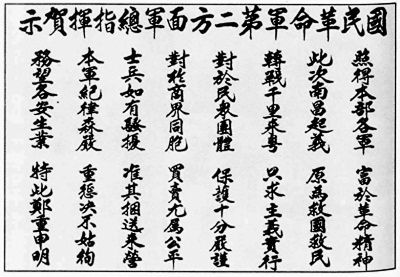 國民革命軍第二方面軍總指揮賀示
照得本部各軍 富於革命精神
此次南昌起義 原為救國救民
轉戰千里來粵 只求主義實行
對於民衆團體 保護十分嚴謹
對於商界同胞 買賣尤屬公平
士兵如有騷擾 准其捆送來營
本軍紀律森嚴 重懲決不姑徇
務望各安生業 特此鄭重申明